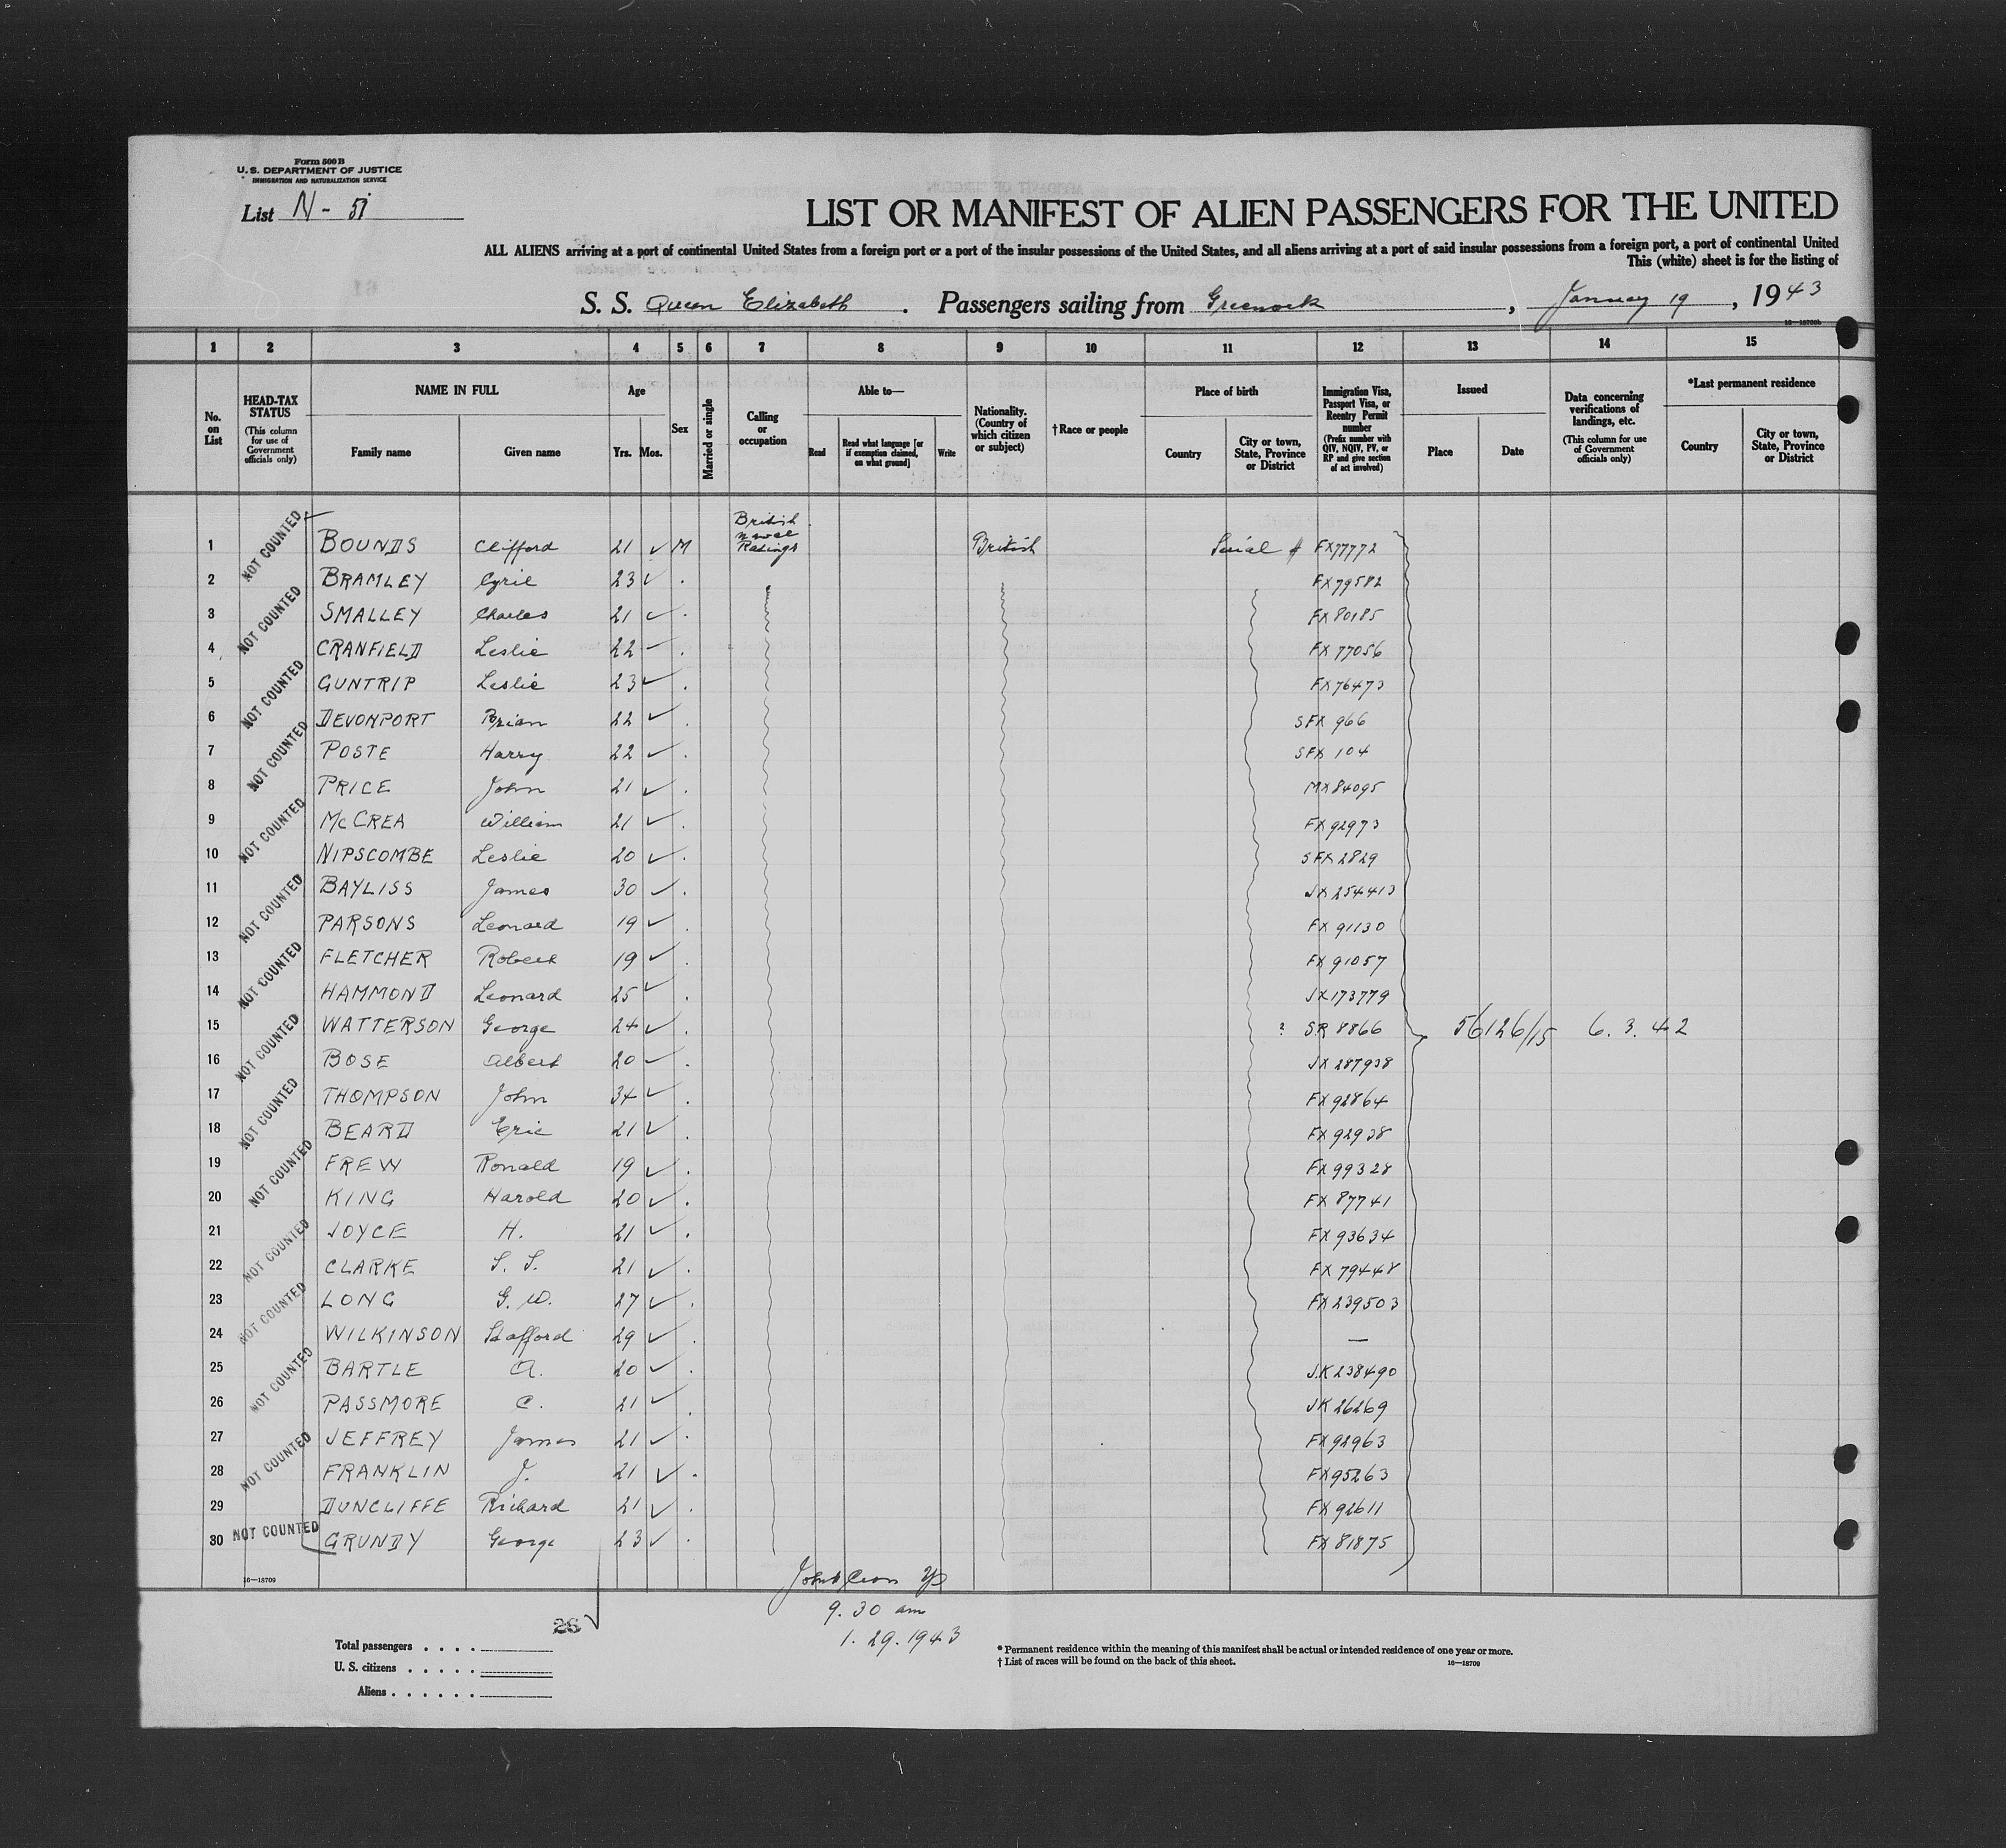 Form 500 B
U. S. DEPARTMENT OF JUSTICE
IMMIGRATION AND NATURALIZATION SERVICE
List N - 51
LIST OR MANIFEST OF ALIEN PASSENGERS FOR THE UNITED
ALL ALIENS arriving at a port of continental United States from a foreign port or a port of the insular possessions of the United States, and all aliens arriving at a port of said insular possessions from a foreign port, a port of continental United
This (white) sheet is for the listing of
S. S. Queen Elizabeth . Passengers sailing from Greenock , January 19 , 1943
1 2 3 4 5 6 7 8 9 10 11 12 13 14 15
No. on List
HEAD-TAX STATUS (This column for use of Government officials only)
NAME IN FULL
Family name Given name
Age
Yrs. Mos.
Sex
Married or single
Calling or occupation
Able to—
Read
Read what language [or if exemption claimed, on what ground]
Write
Nationality. (Country of which citizen or subject)
†Race or people
Place of birth
Country
City or town, State, Province or District
Immigration Visa, Passport Visa, or Reentry Permit number (Prefix number with QIV, NQIV, PV, or RP and give section of act involved)
Issued
Place Date
Data concerning verifications of landings, etc. (This column for use of Government officials only)
*Last permanent residence
Country
City or town, State, Province or District
1 NOT COUNTED BOUNDS Clifford 21 M British Naval Ratings British Serial # FX77772
2 BRAMLEY Cyril 23 FX79582
3 NOT COUNTED SMALLEY Charles 21 FX80185
4 CRANFIELD Leslie 22 FX 77056
5 NOT COUNTED GUNTRIP Leslie 23 FX76473
6 DEVONPORT Brian 22 SFX 966
7 NOT COUNTED POSTE Harry 22 SFX 104
8 PRICE John 21 MX84095
9 NOT COUNTED McCREA William 21 FX92973
10 NIPSCOMBE Leslie 20 SFX2829
11 NOT COUNTED BAYLISS James 30 JX254413
12 PARSONS Leonard 19 FX 91130
13 NOT COUNTED FLETCHER Robert 19 FX 91057
14 HAMMOND Leonard 25 JX173779
15 NOT COUNTED WATTERSON George 24 ? SR 8866 56126/15 6. 3. 42
16 BOSE Albert 20 JX287938
17 NOT COUNTED THOMPSON John 34 FX92864
18 BEARD Eric 21 FX92938
19 NOT COUNTED FREW Ronald 19 FX99328
20 KING Harold 20 FX 87741
21 NOT COUNTED JOYCE H. 21 FX93634
22 CLARKE S. S. 21 FX 79448
23 NOT COUNTED LONG G. W. 27 FX239503
24 WILKINSON Stafford 29 —
25 NOT COUNTED BARTLE A. 20 JK238490
26 PASSMORE C. 21 JK26269
27 NOT COUNTED JEFFREY James 21 FX92963
28 FRANKLIN J. 21 FX95263
29 DUNCLIFFE Richard 21 FX92611
30 NOT COUNTED GRUNDY George 23 FX81875
16—18709
9. 30 am
1. 29. 1943
Total passengers . . . .
U. S. citizens . . . . .
Aliens . . . . . .
* Permanent residence within the meaning of this manifest shall be actual or intended residence of one year or more.
† List of races will be found on the back of this sheet. 16—18709